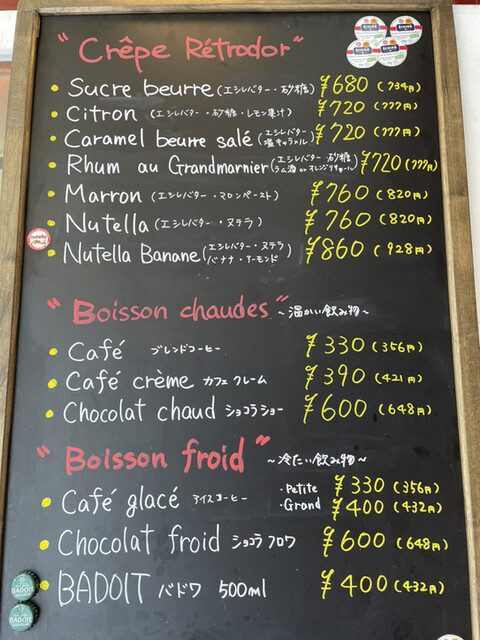 "Crêpe Rétrodor"
Sucre beurre (エシレバター・砂糖) ¥680 (734円)
Citron (エシレバター・砂糖・レモン果汁) ¥720 (777円)
Caramel beurre salé (エシレバター 塩キャラメル) ¥720 (777円)
Rhum au Grandmarnier (エシレバター 砂糖 ラム酒 or オレンジリキュール) ¥720 (777円)
Marron (エシレバター・マロンペースト) ¥760 (820円)
Nutella (エシレバター・ヌテラ) ¥760 (820円)
Nutella Banane (エシレバター・ヌテラ バナナ・アーモンド) ¥860 (928円)
"Boisson chaudes" ~温かい飲み物~
Café ブレンドコーヒー ¥330 (356円)
Café crème カフェクレーム ¥390 (421円)
Chocolat chaud ショコラショー ¥600 (648円)
"Boisson froid" ~冷たい飲み物~
Café glacé アイスコーヒー ・Petite ¥330 (356円)
・Grand ¥400 (432円)
Chocolat froid ショコラ フロワ ¥600 (648円)
BADOIT バドワ 500ml ¥400 (432円)
BADOIT
BADOIT